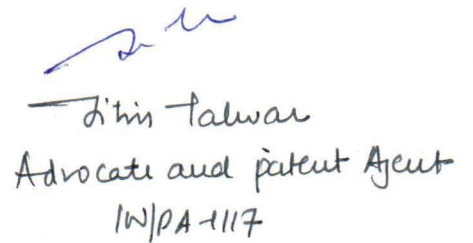 Jitin Talwar
Advocate and patent Agent
IN/PA-1117